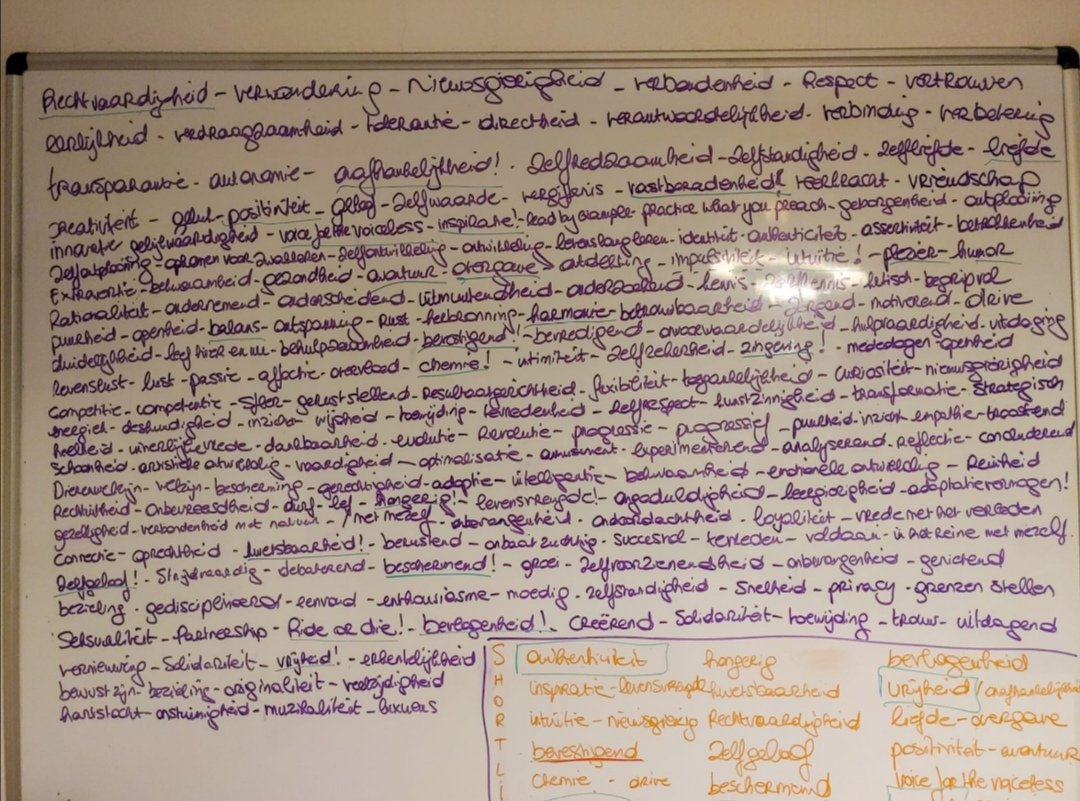 Rechtvaardigheid - verwondering - nieuwsgierigheid - verbondenheid - Respect - vertrouwen
eerlijkheid - verdraagzaamheid - tolerantie - directheid - verantwoordelijkheid - verbinding - verbetering
transparantie - autonomie - onafhankelijkheid! - zelfredzaamheid - zelfstandigheid - zelfliefde - liefde
creativiteit - geluk - positiviteit - geloof - zelfwaarde - vergiffenis - vastberadenheid - veerkracht - vriendschap
innovatie - gelijkwaardigheid - voice for the voiceless - inspiratie! - lead by example - practice what you preach - geborgenheid - ontplooiing
zelfontplooiing - opkomen voor zwakkeren - zelfontwikkeling - ontwikkeling - levenslang leren - identiteit - authenticiteit - assertiviteit - betrokkenheid
Extraversie - bekwaamheid - gezondheid - avontuur - overgave - ontdekking - impulsiviteit - intuïtie! - plezier - humor
Rationaliteit - ondernemend - onderscheidend - uitmuntendheid - onderzoekend - kennis - zelfkennis - kritisch - begripvol
puurheid - openheid - balans - ontspanning - Rust - herbronning - harmonie - betrouwbaarheid - motiverend - drive
duidelijkheid - leef hier en nu - behulpzaamheid - bevestigend! - bevredigend - onvoorwaardelijkheid - hulpvaardigheid - uitdaging
levenslust - lust - passie - affectie - overvloed - chemie! - intimiteit - zelfzekerheid - zingeving! - mededogen - openheid
competitie - competentie - sfeer - geruststellend - Resultaatgerichtheid - flexibiliteit - toegankelijkheid - curiositeit - nieuwsgierigheid
energiek - deskundigheid - inzicht - wijsheid - toewijding - tevredenheid - zelfrespect - kunstzinnigheid - transformatie - strategisch
heelheid - innerlijke vrede - dankbaarheid - evolutie - Revolutie - progressie - progressief - puurheid - inzicht - empathie - troostend
schoonheid - artistieke ontwikkeling - vaardigheid - optimalisatie - amusement - experimenterend - analyserend - reflectie - concluderend
Dierenwelzijn - welzijn - bescherming - gerechtigheid - adoptie - intelligentie - bekwaamheid - emotionele ontwikkeling - Reinheid
Rechtuitheid - onbevreesdheid - durf - lef - hongerig! - levensvreugde! - ongeduldigheid - leergierigheid - adaptatievermogen!
gezelligheid - verbondenheid met natuur - / met mezelf - onbevangenheid - ondoordachtheid - loyaliteit - vrede met het verleden
Connectie - oprechtheid - kwetsbaarheid! - berustend - onbaatzuchtig - succesvol - tevreden - voldaan - in het reine met mezelf
Zelfgeloof! - Slagvaardig - debatterend - beschermend! - groei - zelfvoorzienendheid - onbevangenheid - genietend
bezieling - gedisciplineerd - eenvoud - enthousiasme - moedig - zelfstandigheid - Snelheid - privacy - grenzen stellen
Seksualiteit - Partnership - Ride or die! - bevlogenheid! - Creërend - Solidariteit - toewijding - trouw - uitdagend
vernieuwing - Solidariteit - vrijheid! - erkentelijkheid
bewustzijn - bezieling - originaliteit - veelzijdigheid
hartstocht - onstuimigheid - muzikaliteit - luxueus
S authenticiteit hongerig bevlogenheid
H inspiratie - levensvreugde kwetsbaarheid vrijheid / onafhankelijkheid
O intuïtie - nieuwsgierig Rechtvaardigheid liefde - overgave
R bevestigend zelfgeloof positiviteit - avontuur
T chemie - drive beschermend voice for the voiceless
L
I